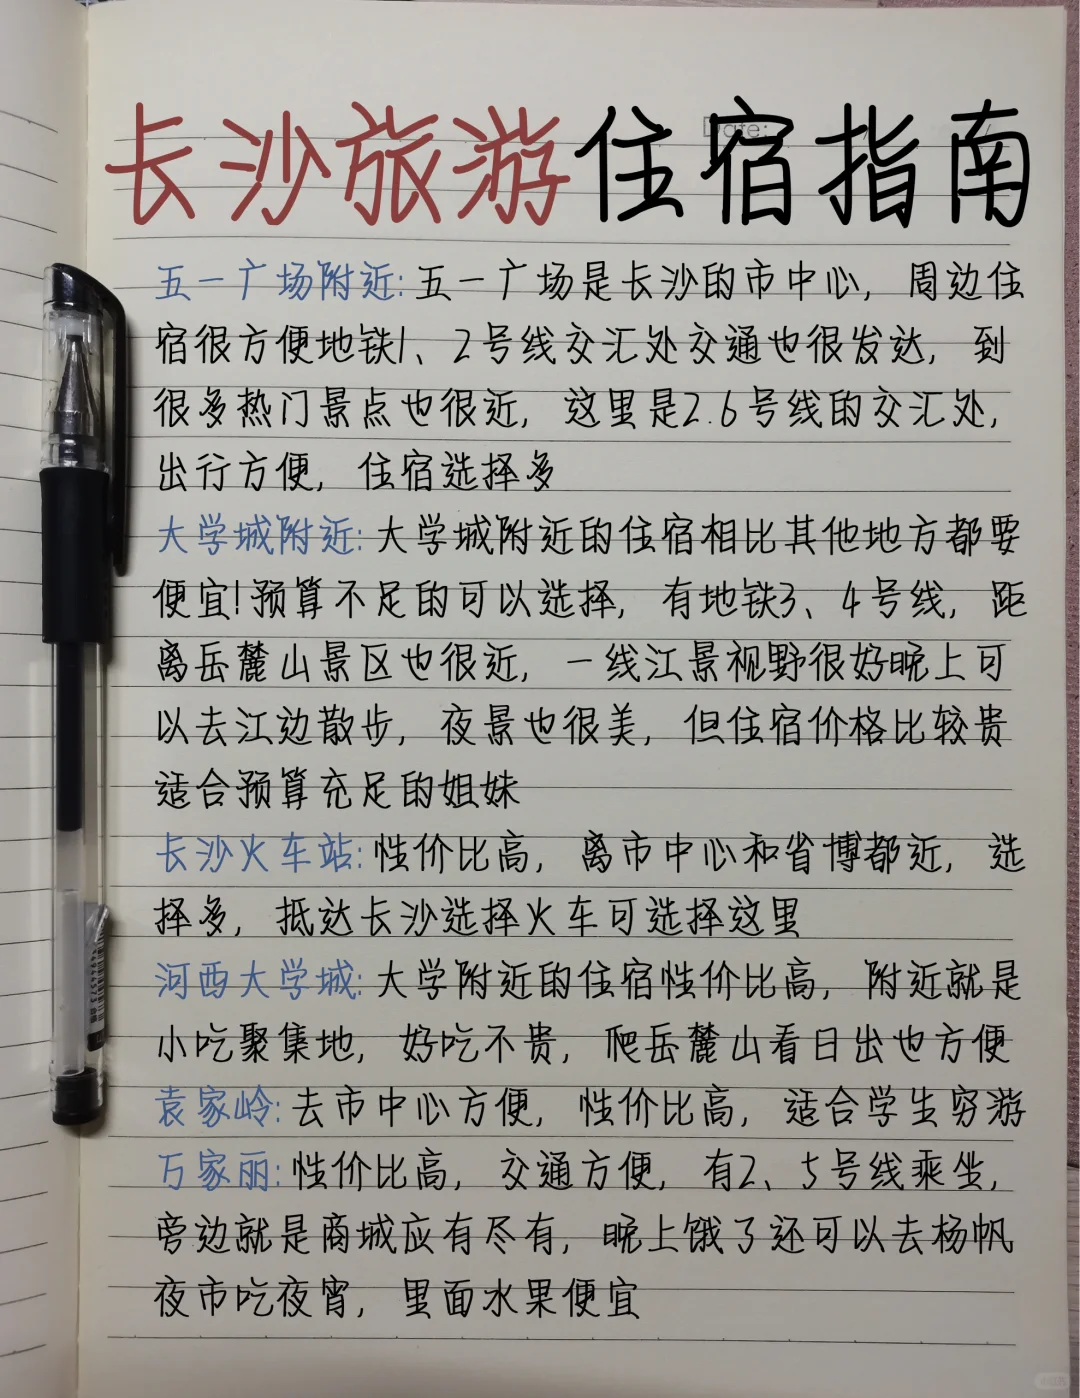 Date:
长沙旅游住宿指南
五一广场附近:五一广场是长沙的市中心，周边住
宿很方便地铁1、2号线交汇处交通也很发达，到
很多热门景点也很近，这里是2.6号线的交汇处，
出行方便，住宿选择多
大学城附近:大学城附近的住宿相比其他地方都要
便宜!预算不足的可以选择，有地铁3、4号线，距
离岳麓山景区也很近，一线江景视野很好晚上可
以去江边散步，夜景也很美，但住宿价格比较贵
适合预算充足的姐妹
长沙火车站:性价比高，离市中心和省博都近，选
择多，抵达长沙选择火车可选择这里
河西大学城:大学附近的住宿性价比高，附近就是
小吃聚集地，好吃不贵，爬岳麓山看日出也方便
袁家岭:去市中心方便，性价比高，适合学生穷游
万家丽:性价比高，交通方便，有2、5号线乘坐，
旁边就是商城应有尽有，晚上饿了还可以去杨帆
夜市吃夜宵，里面水果便宜